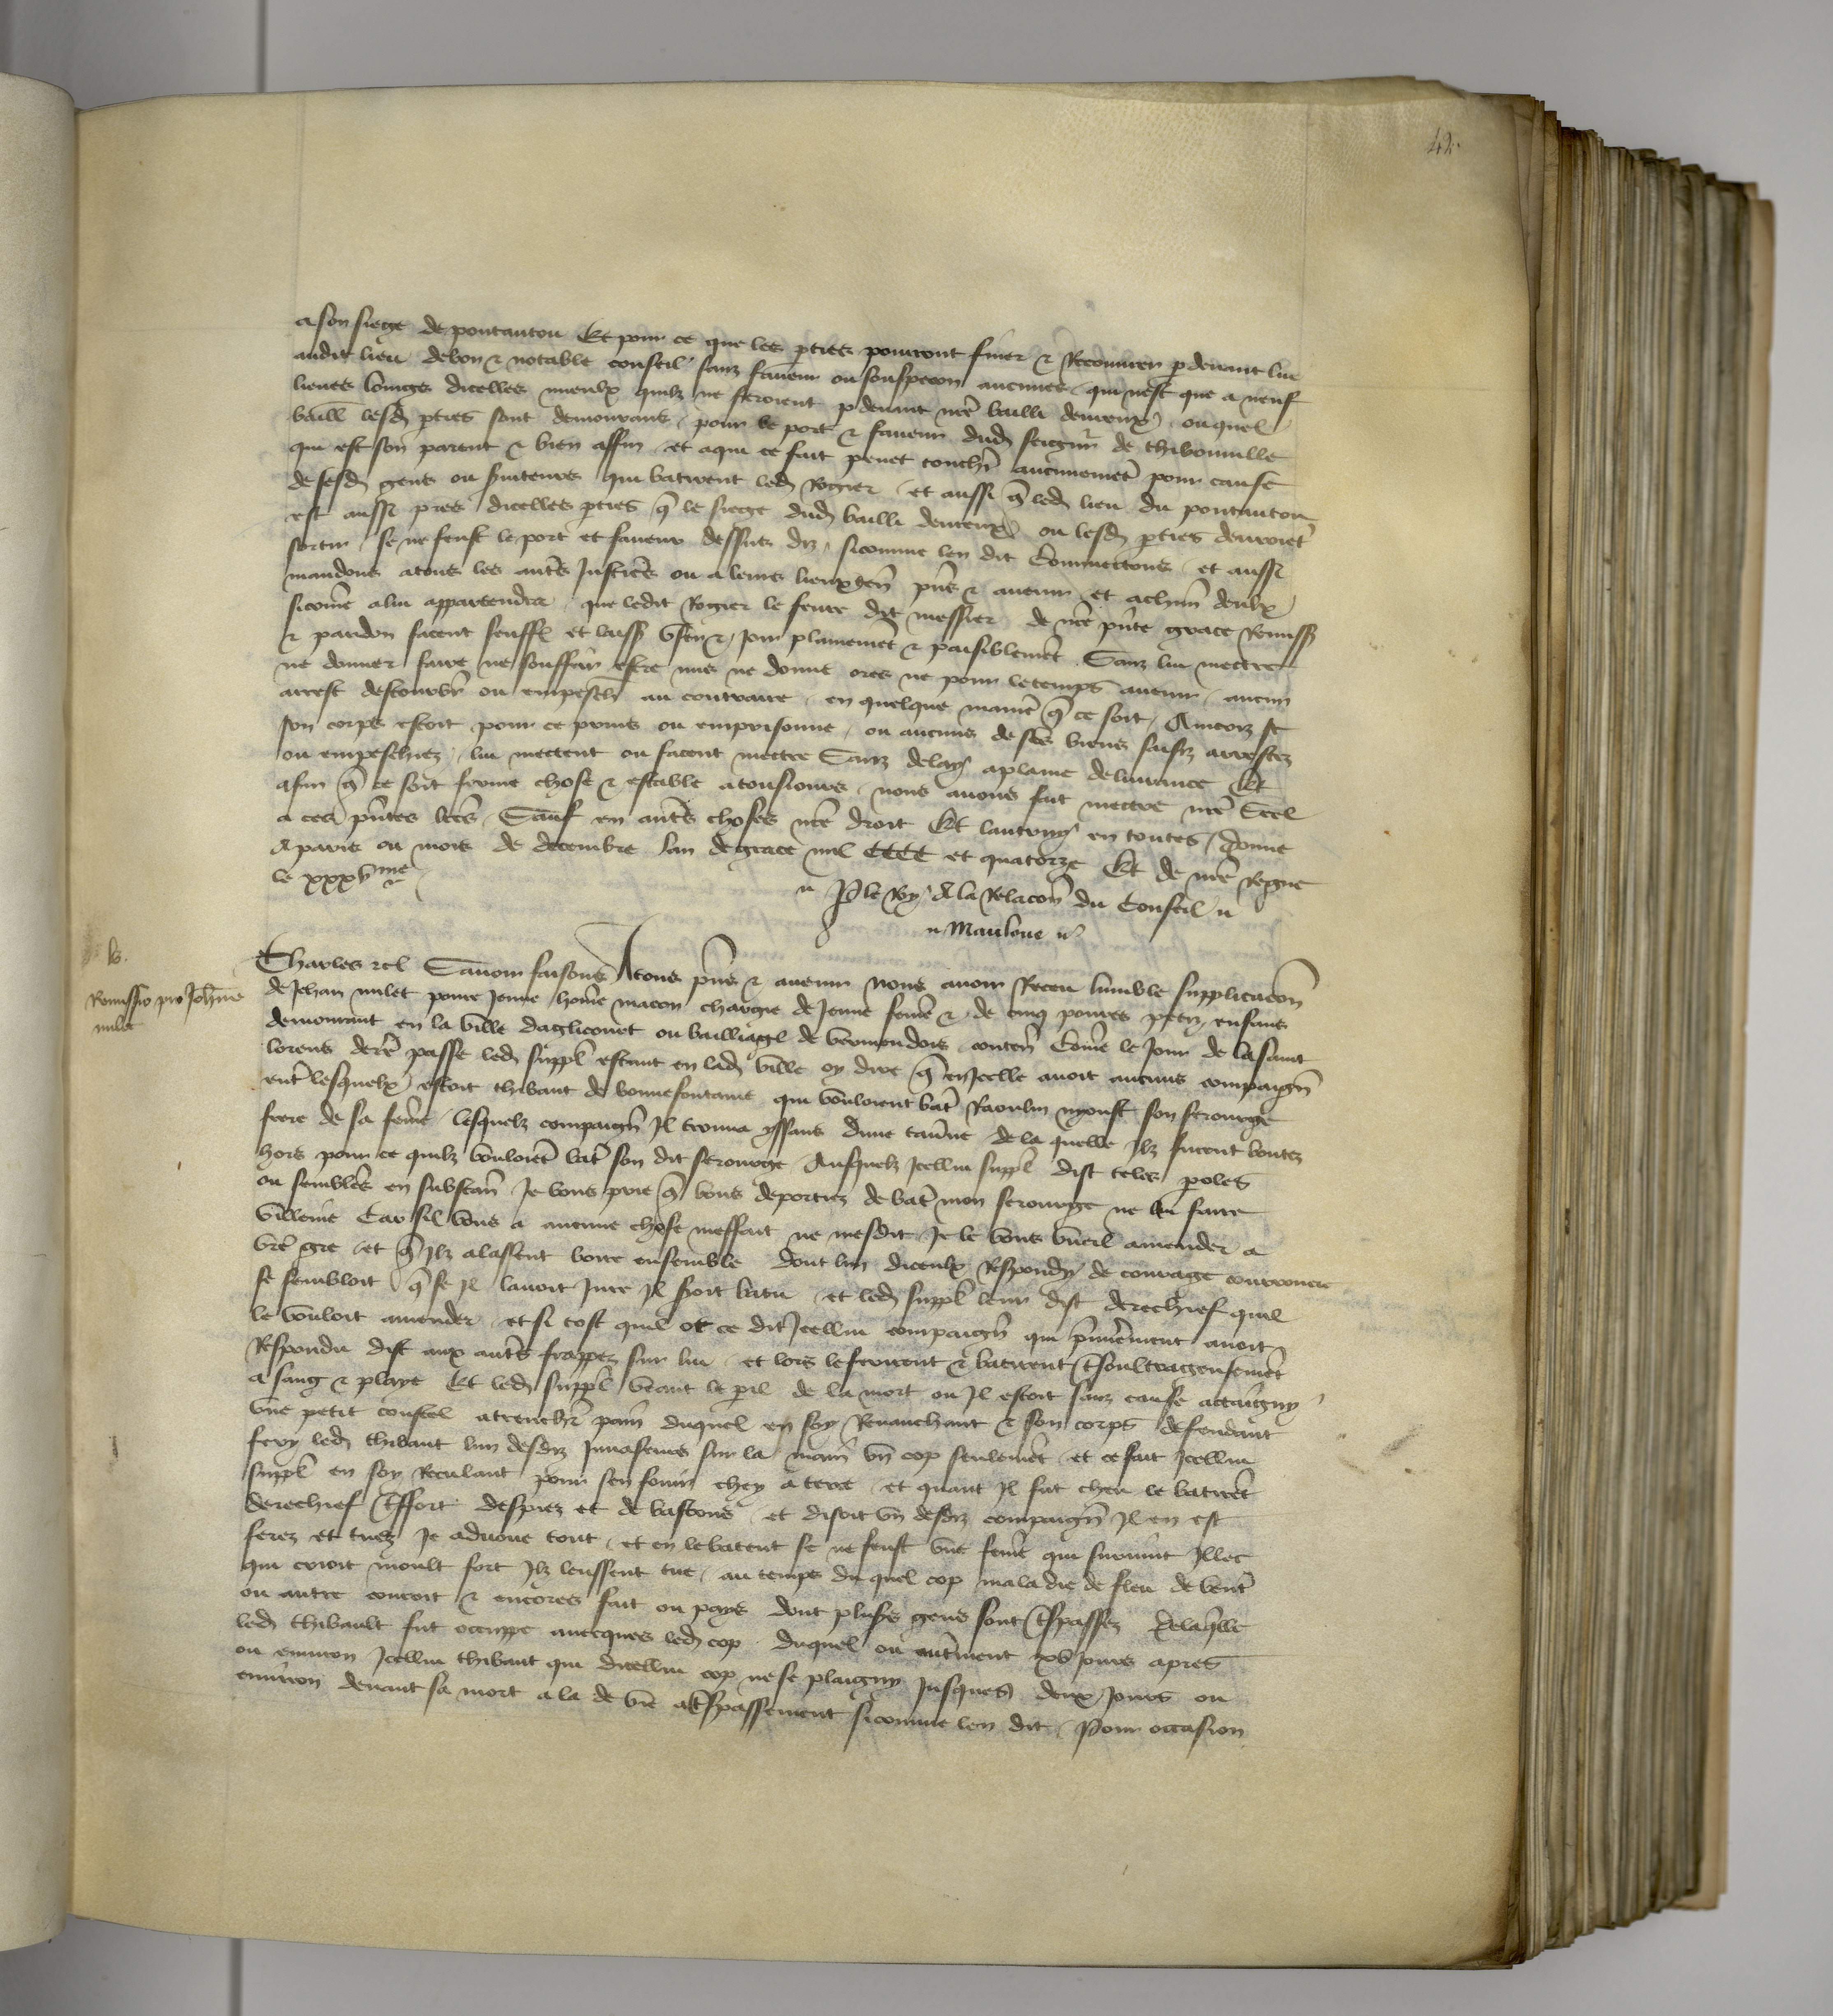 42.
a son siege de pontautou Et pour ce que les pties pourront finer & Recouurer pdeuant lui
audit lieu de bon & notable conseil sanz faueur ou souspecon aucunes qui nest que a neuf
lieues loings dicelles mieulx quilz ne feroient pdeuant nre bailli deureux ouquel
baill lesd pties sont demourans pour le port & faueur dud seigneur de thibouuille
qui est son parent & bien affin et a qui ce fait peuet touchr aucunemet pour cause
de sesd gens ou seruiteurs qui batirent led Rogier et aussi q led lieu du pontautou
est aussi pres dicelles pties q le siege dud bailli deureux ou lesd pties deuroiet
sortir se ne feust le port et faueur dessus diz sicomme len dit Commectons et aussi
mandons a tous les autres Justiciers ou a leurs lieuxten pns & auenir et a chun deulx
sicome a lui appartendra que ledit Rogier le feure dit messier de nre pnte grace Remiss
& pardon facent seuffr et laiss user & joir plainemet & paisiblemet Sanz lui mectre
ne donner faire ne souffrir estre mis ne donne ores ne pour le temps auenir aucun
arrest destourbr ou empeschr au contraire en quelque manie q ce soit Aincoiz se
son corps estoit pour ce prins ou emprisonne ou aucuns de ses biens saisiz arrestez
ou empeschiez lui mectent ou facent mectre Sanz delay a plaine deliurance Et
afin q ce soit ferme chose & estable a tousiours nous auons fait mectre nre Seel
a ces pntes lres Sauf en autres choses nre droit Et lautruy en toutes Donne
A paris ou mois de decembre lan de grace mil CCCC et quatorze Et de nre Regne
le xxxvme
P le Roy A la Relacon du Conseil
Mauloue
Charles etc Sauoir faisons A tous pns & auenir Nous auoir Receu lumble supplicacion
lv.
Remissio pro Johanne
milet
de Jehan milet poure Jeune home macon chargie de Jeune feme & de cinq poures petiz enfans
demourant en la ville daglicourt ou bailliage de vermendois conten Come le Jour de la saint
lorens derre passe led suppl estant en lad ville oy dire q en Icelle auoit aucuns compaign
entre lesquelx estoit thibaut de bonnefontaine qui vouloient batre Raoulin myoust son serourge
frere de sa feme lesquelz compaign Il trouua yssans dune tauerne de la quelle Ilz furent boutez
hors pour ce quilz vouloiet batre son dit serourge Ausquelz Icellui suppl dist teles paroles
ou sembles en substan Je vous prie q vous deportez de batre mon serourge ne lui faire
villenie Car sil vous a aucune chose meffait ne mesdit Je le vous vueil amender a
vre gre et q Ilz alassent boire ensemble dont lun diceulx Respondy de courage courroucie
se sembloit q se Il lauoit Jure Il seroit batu et led suppl leur dist derechief quil
le vouloit amender et si tost quil ot ce dit Icellui compaign qui premierement auoit
Respondu dist aux autres frappez sur lui et lors le ferirent & batirent tresoultrageusemet
a sang & playe Et led suppl veant le pil de la mort ou Il estoit sanz cause attaigny
vne petit coustel a trenchr pain duquel en soy Reuanchant & son corps defendant
fery led thibaut lun desdiz Inuaseurs sur la main vn cop seulemet et ce fait Icellui
suppl en soy Reculant pour sen fouir chey a terre et quant Il fut cheu le batiret
derechief tresfort despiez et de bastons et disoit vn desdiz compaign Il en est
ferez et tuez Je aduoue tout et en le batent se ne feust vne feme qui suruint Illec
qui crioit moult fort Ilz leussent tue au temps du quel cop maladie de fleu de ventre
ou autre couroit & encores fait ou pays dont plusrs gens sont trespassez de la qlle
led thibault fut occuppe auecques led cop duquel ou autrement xv Jours apres
ou enuiron Icellui thibaut qui dicellui cop ne se plaigny Jusques deux Jours ou
enuiron deuant sa mort a la de vie a trespassement sicomme len dit Pour occasion